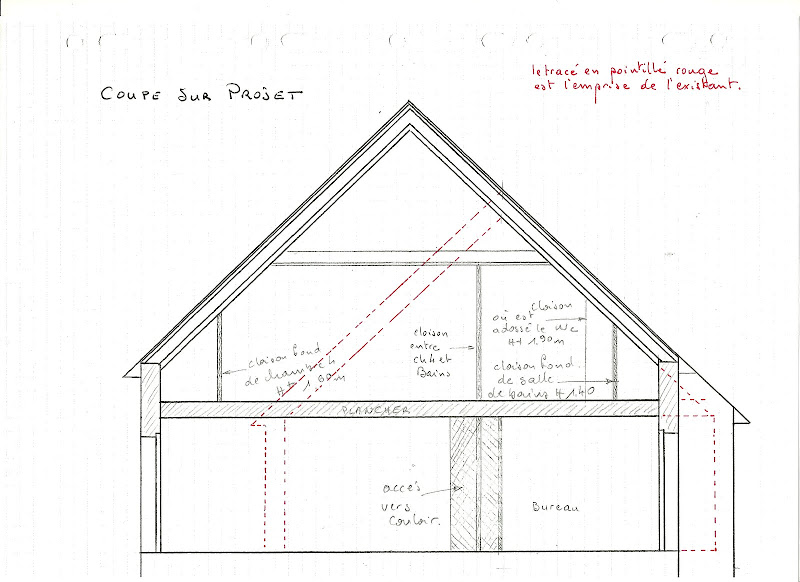 COUPE SUR PROJET
le tracé en pointillé rouge
est l'emprise de l'existant.
cloison fond
de chambre 4
Ht 1,90m
cloison
entre
ch 4 et
Bains
cloison
où est
adossé le Wc
Ht 1,90m
cloison fond.
de salle
de bains Ht 1.40
PLANCHER
accés
vers
Couloir.
Bureau